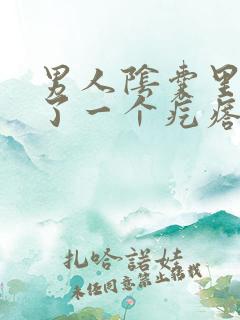 男人陰囊里
了一个疙瘩
扎哈諾娃
未经同意禁止转载